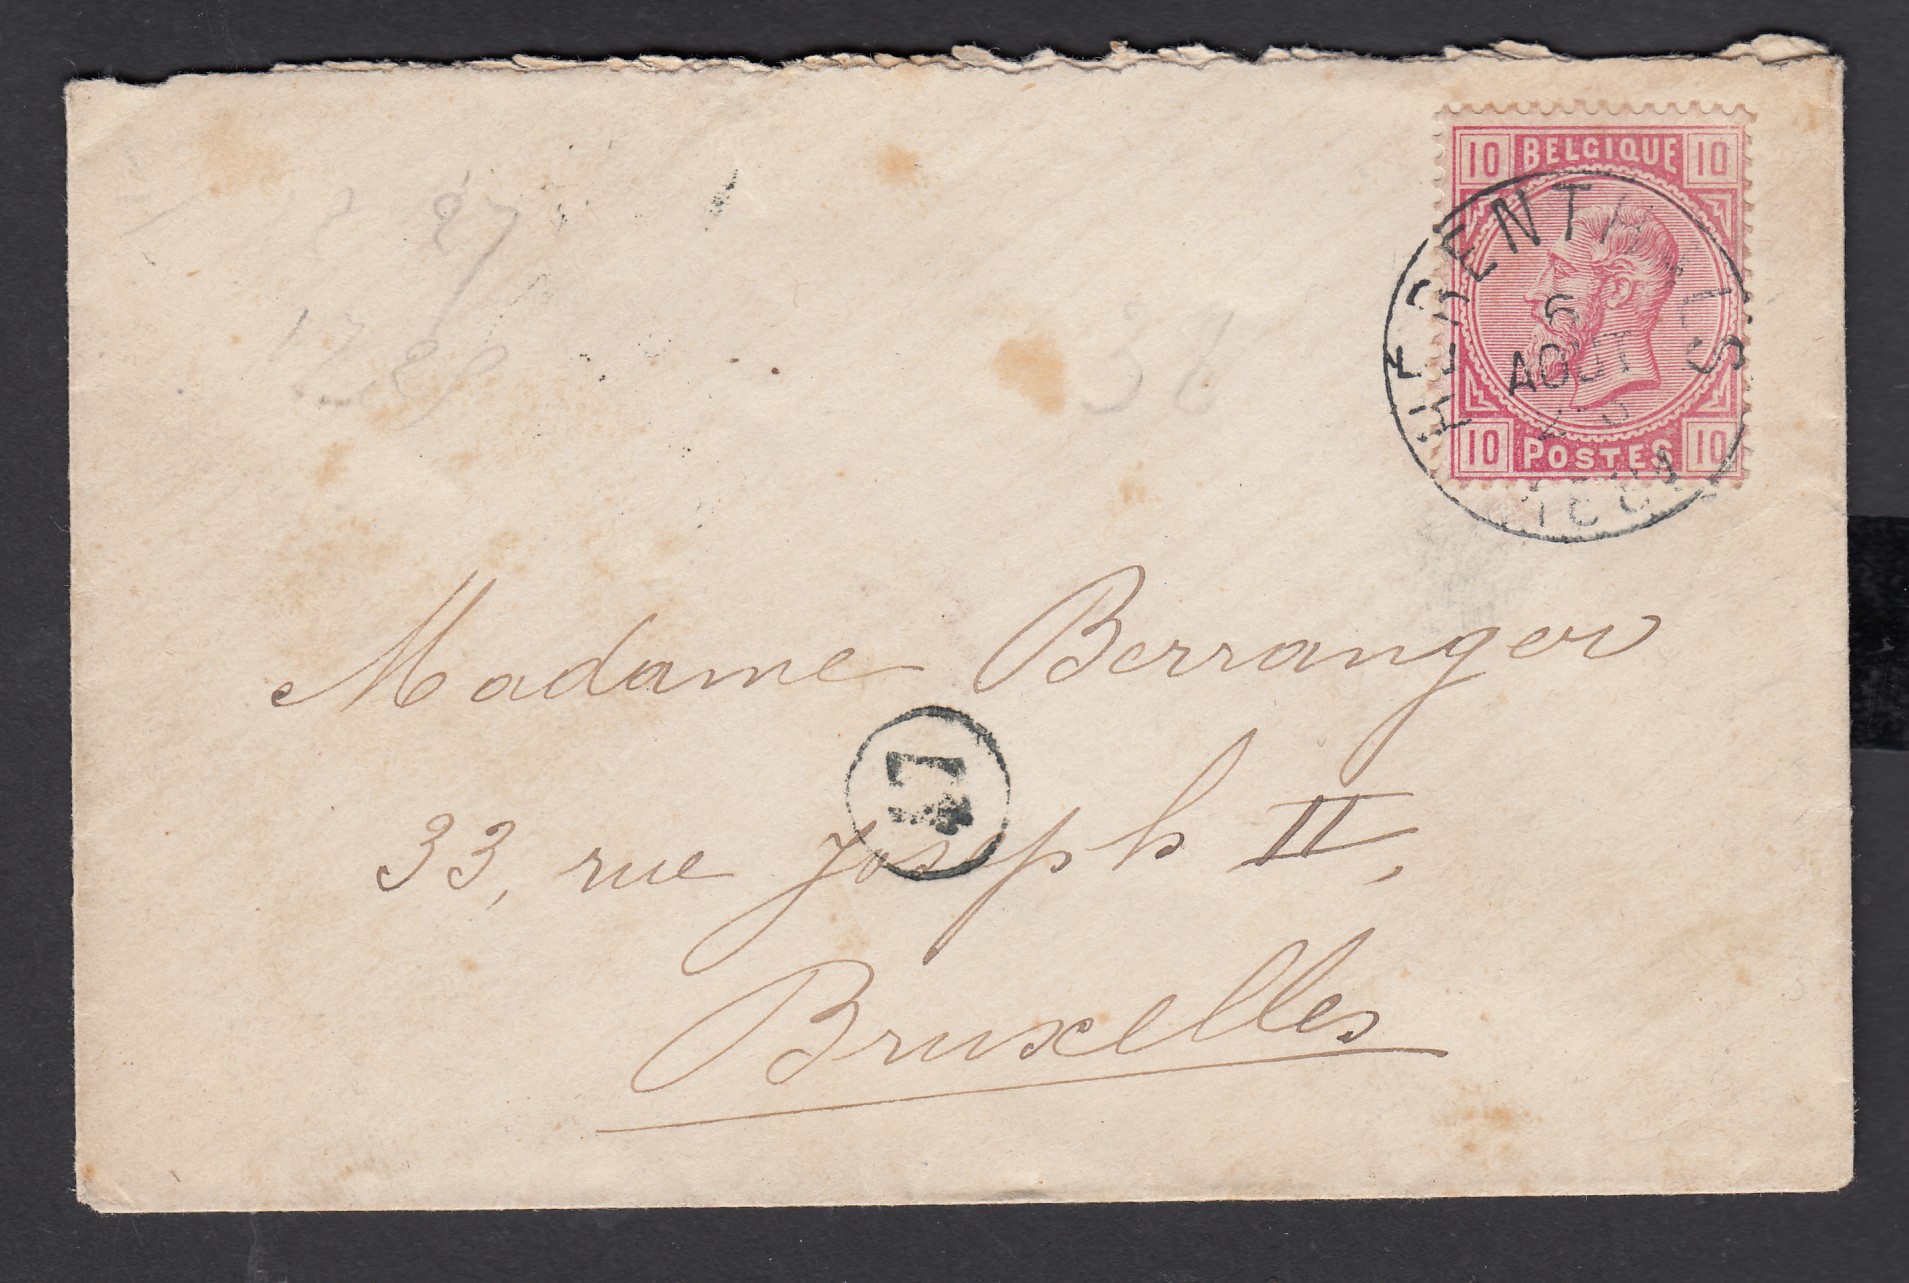 10 BELGIQUE 10
HERENTHALS
6
AOUT
10 POSTES 10
38
Madame Berranger
33, rue Joseph II,
Bruxelles